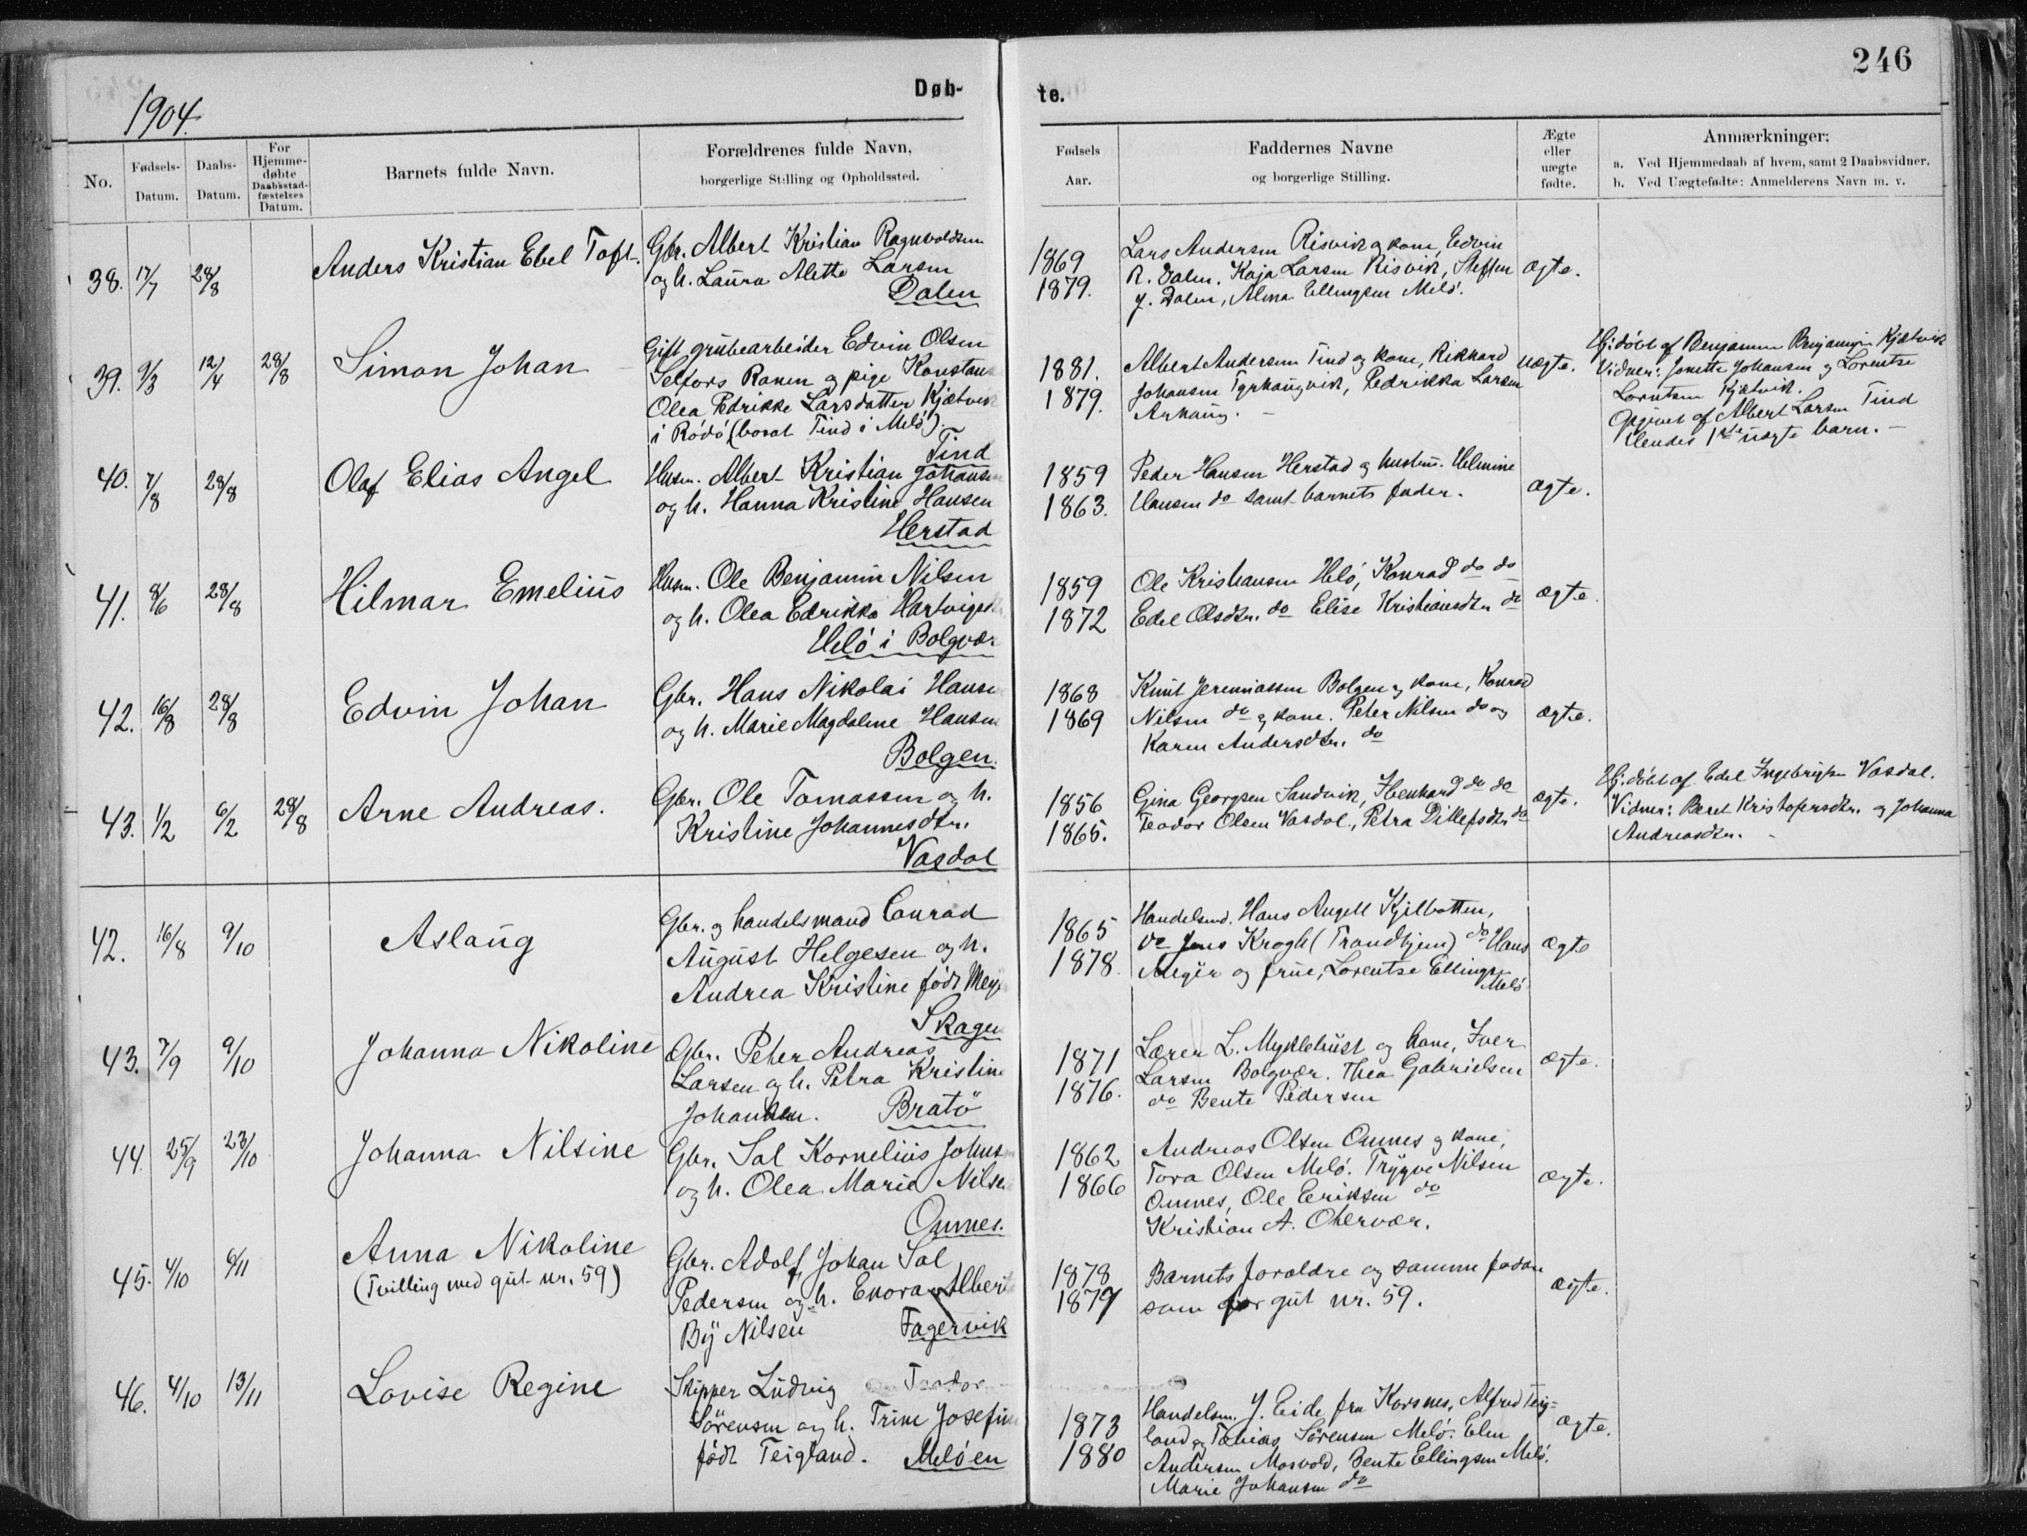 246
Døb-
te.
1904.
No.
Fødsels-
Datum.
Daabs-
Datum.
For
Hjemme-
døbte
Daabsstad-
fæstelses
Datum.
Barnets fulde Navn.
Forældrenes fulde Navn,
borgerlige Stilling og Opholdssted.
Fødsels
Aar.
Faddernes Navne
og borgerlige Stilling.
Ægte
eller
uægte
fødte.
Anmærkninger:
a. Ved Hjemmedaab af hvem, samt 2 Daabsvidner.
b. Ved Uægtefødte: Anmelderens Navn m. v.
38. 17/7 28/8
Anders Kristian Ebel Toft.
Gbr. Albert Kristian Ragnvoldsen
og h. Laura Alette Larsen
Dalen
1869
1879.
Lars Andersen Risvik og kone, Edvin
R. Dalen, Kaja Larsen Risvik, Steffen
J. Dalen, Alma Ellingsen Melø.
ægte.
39. 9/3 12/4 28/8
Simon Johan
Gift grubearbeider Edvin Olsen
Selfors Ranen og pige Konstanse
Olea Edrikke Larsdatter Kjætvik
i Rødø (bosat Tind i Melø).
Tind
1881.
1879.
Albert Andersen Tind og kone, Rikhard
Johansen Tyrhaugvik, Pedrikka Larsen
Arhaug. -
uægte.
Hj.døbt af Benjamin Benjaminsen Kjætvik
Vidner: Jonette Johansen og Lorentse
Lorntsen Kjætvik.
Opgivet af Albert Larsen Tind
Hendes 1ste uægte barn. -
40. 7/8 28/8
Olaf Elias Angel
Husm. Albert Kristian Johansen
og h. Hanna Kristine Hansen
Herstad
1859
1863.
Peder Hansen Herstad og hustru Helmine
Hansen do samt barnets fader.
ægte.
41. 8/6 28/8
Hilmar Emelius
Husm. Ole Benjamin Nilsen
og h. Olea Edrikka Hartvigsd
Helø i Bolgvær
1859
1872
Ole Kristiansen Helø, Konrad do do
Edel Olsdtr. do Elise Kristiansdtr. do
ægte.
42. 16/8 28/8
Edvin Johan
Gbr. Hans Nikolai Hansen
og h. Marie Magdalene Hansen
Bolgen.
1868
1869
Knut Jeremiassen Bolgen og kone, Konrad
Nilsen do og kone. Peter Nilsen do og
Karen Andersdtr. do
ægte.
43. 1/2 6/2 28/8
Arne Andreas.
Gbr. Ole Tomassen og h.
Kristine Johannesdtr.
Vasdal
1856
1865.
Gina Georgsen Sandvik, Ibenhard do do
Teodor Olsen Vasdal, Petra Ditlefsdtr do
ægte.
Hj.døbt af Edel Ingebrigtsen Vasdal.
Vidner: Beret Kristofersdtr. og Johanna
Andreasdtr. -
42. 16/8 9/10
Aslaug
Gbr. og handelsmand Conrad
August Helgesen og h.
Andrea Kristine født Meyer
Skagen
1865
1878.
Handelsmd. Hans Angell Kjelbotten,
do Jens Krogh (Trondhjem) do Hans
Meyer og frue, Lorentse Ellingsen
Melø
ægte
43. 7/9 9/10
Johanna Nikoline
Gbr. Peter Andreas
Larsen og h. Petra Kristine
Johansen. Bratø
1871
1876.
Lærer L. Myklebust og kone, Iver
Larsen Bolgvær. Thea Gabrielsen
do Bente Pedersen
ægte.
44. 25/9 23/10
Johanna Nilsine
Gbr. Sal Kornelius Johnsen
og h. Olea Marie Nilsen
Ounes.
1862
1866
Andreas Olsen Ounes og kone,
Tora Olsen Melø. Trygve Nilsen
Ounes, Ole Eriksen do
Kristian A. Otervær.
ægte.
45. 4/10 6/11
Anna Nikoline
(Tvilling med gut nr. 59)
Gbr. Adolf Johan Sal
Pedersen og h. Enora Alberta
By Nilsen Fagervik
1878
1879
Barnets forældre og samme fadere
som for gut nr. 59.
ægte.
46. 4/10 13/11
Lovise Regine
Skipper Ludvig Teodor
Sörensen og h. Trine Josefine
født Teigland. Meløen
1873
1880
Handelsm. J. Eide fra Korsnes, Alfred Teig-
land og Tobias Sörensen Melø. Elen
Andersen Mosvold, Bente Ellingsen Melø.
Marie Johansen do
ægte.